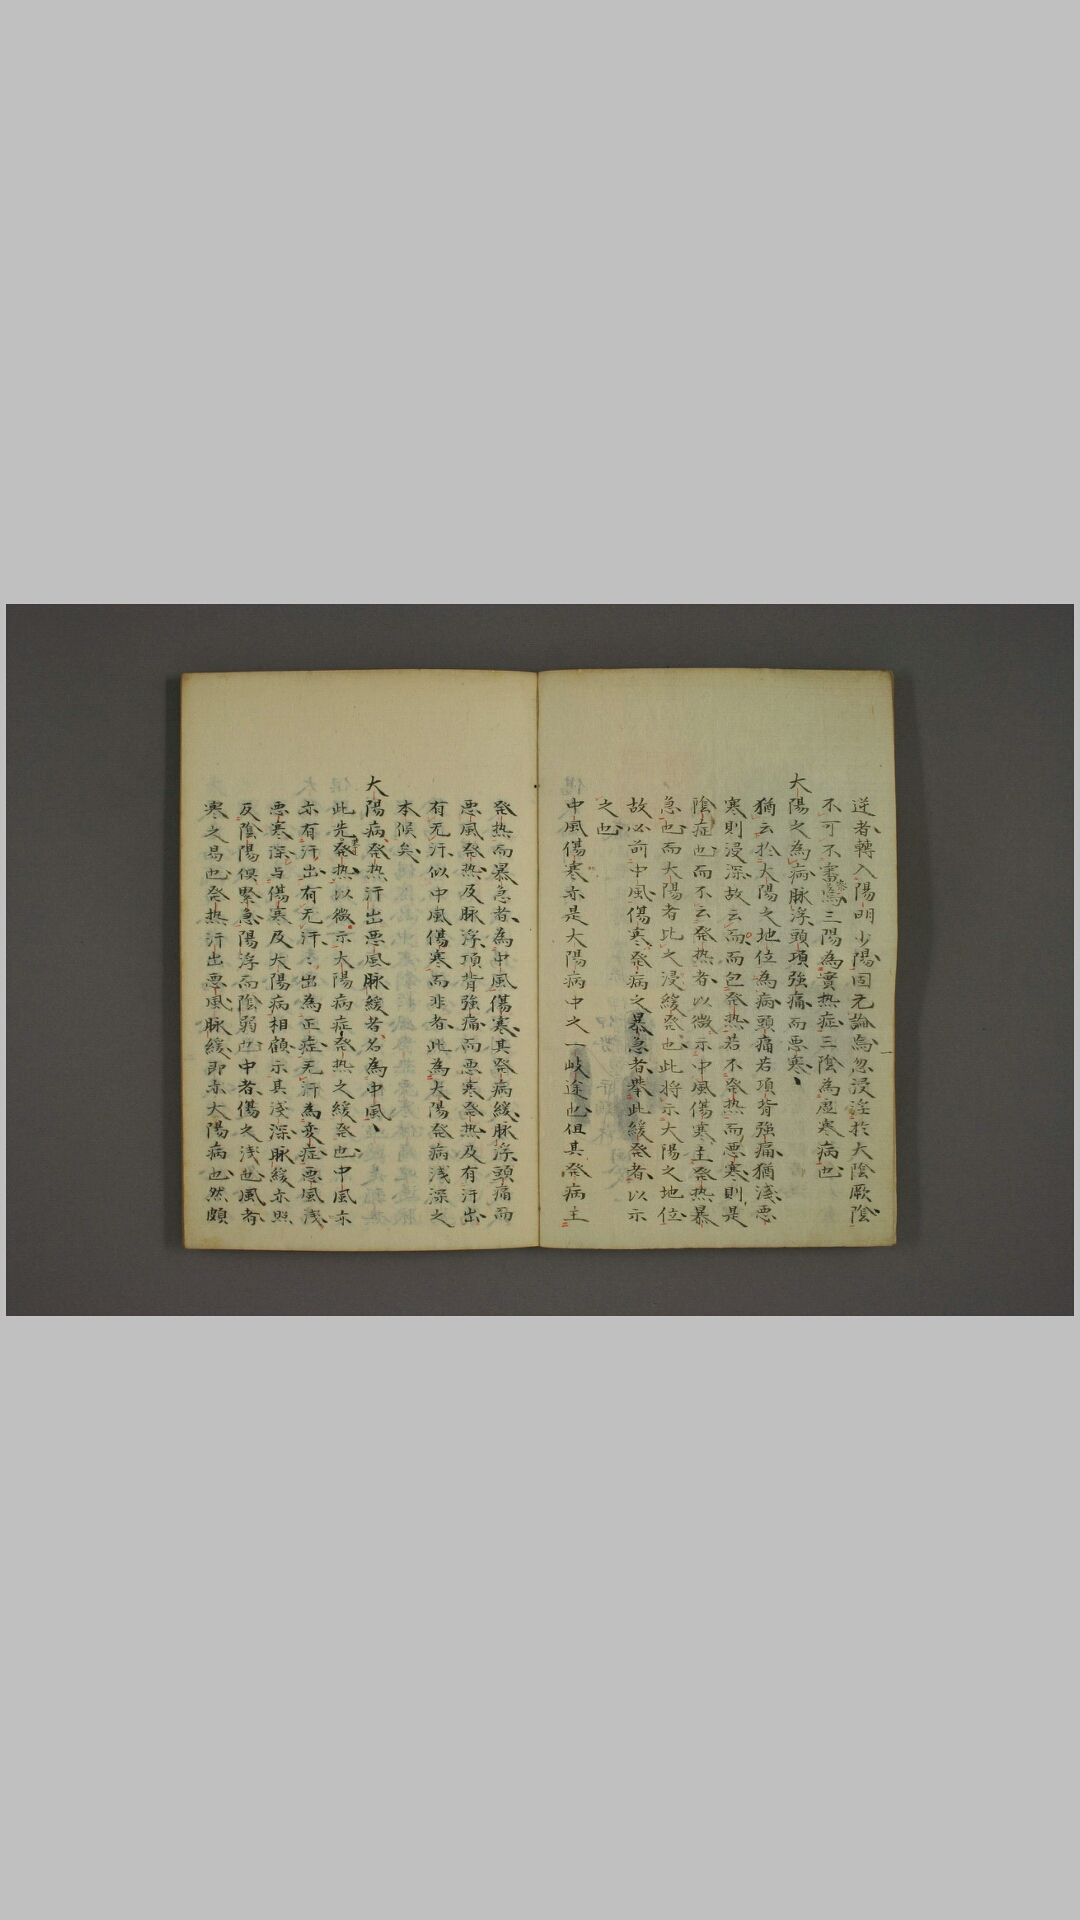 逆者轉入陽明少陽固无論焉忽浸淫於大陰厥陰
不可不審焉三陽為實热症三陰為虚寒病也
大陽之為病脉浮頭項強痛而悪寒
猶云於大陽之地位為病頭痛若項背強痛猶淺悪
寒則浸深故云而而包発热若不発热而悪寒則是
陰症也而不云発热者以微示中風傷寒主発热暴
急也而大陽者比之浸緩発也此将示大陽之地位
故必前中風傷寒発病之暴急者举此緩発者以示
之也
中風傷寒亦是大陽病中之一岐途也但其発病主
発热而暴急者為中風傷寒其発病緩脉浮頭痛而
悪風発热及脉浮項背強痛而悪寒発热及有汗出
有无汗似中風傷寒而非者此為大陽発病淺深之
本候矣
大陽病発热汗出悪風脉緩者名為中風
此先発热以微示大陽病症発热之緩発也中風亦
亦有汗出有无汗汗出為正症无汗為変症悪風淺
悪寒深与傷寒及大陽病相顧示其淺深脉緩亦照
反陰陽俱緊急陽浮而陰弱也中者傷之淺也風者
寒之易也発热汗出悪風脉緩即亦大陽病也然頗